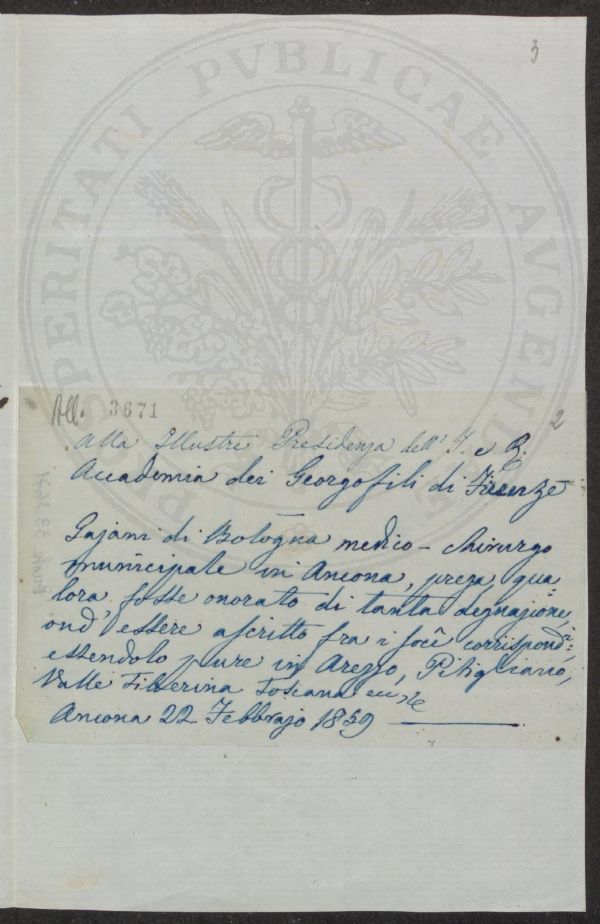 3
PROSPERITATI PVBLICAE AVGENDAE
All. 3671
2
Alla Illustre Presidenza dell' I. e R.
Accademia dei Georgofili di Firenze
Gajani di Bologna medico-chirurgo
municipale in Ancona, prega qua
lora fosse onorato di tanta degnazione,
ond' essere ascritto fra i socî corrispond:ti
essendolo pure in Arezzo, Pitigliano,
Valle Tiberina Toscana
Ancona 22 Febbrajo 1859